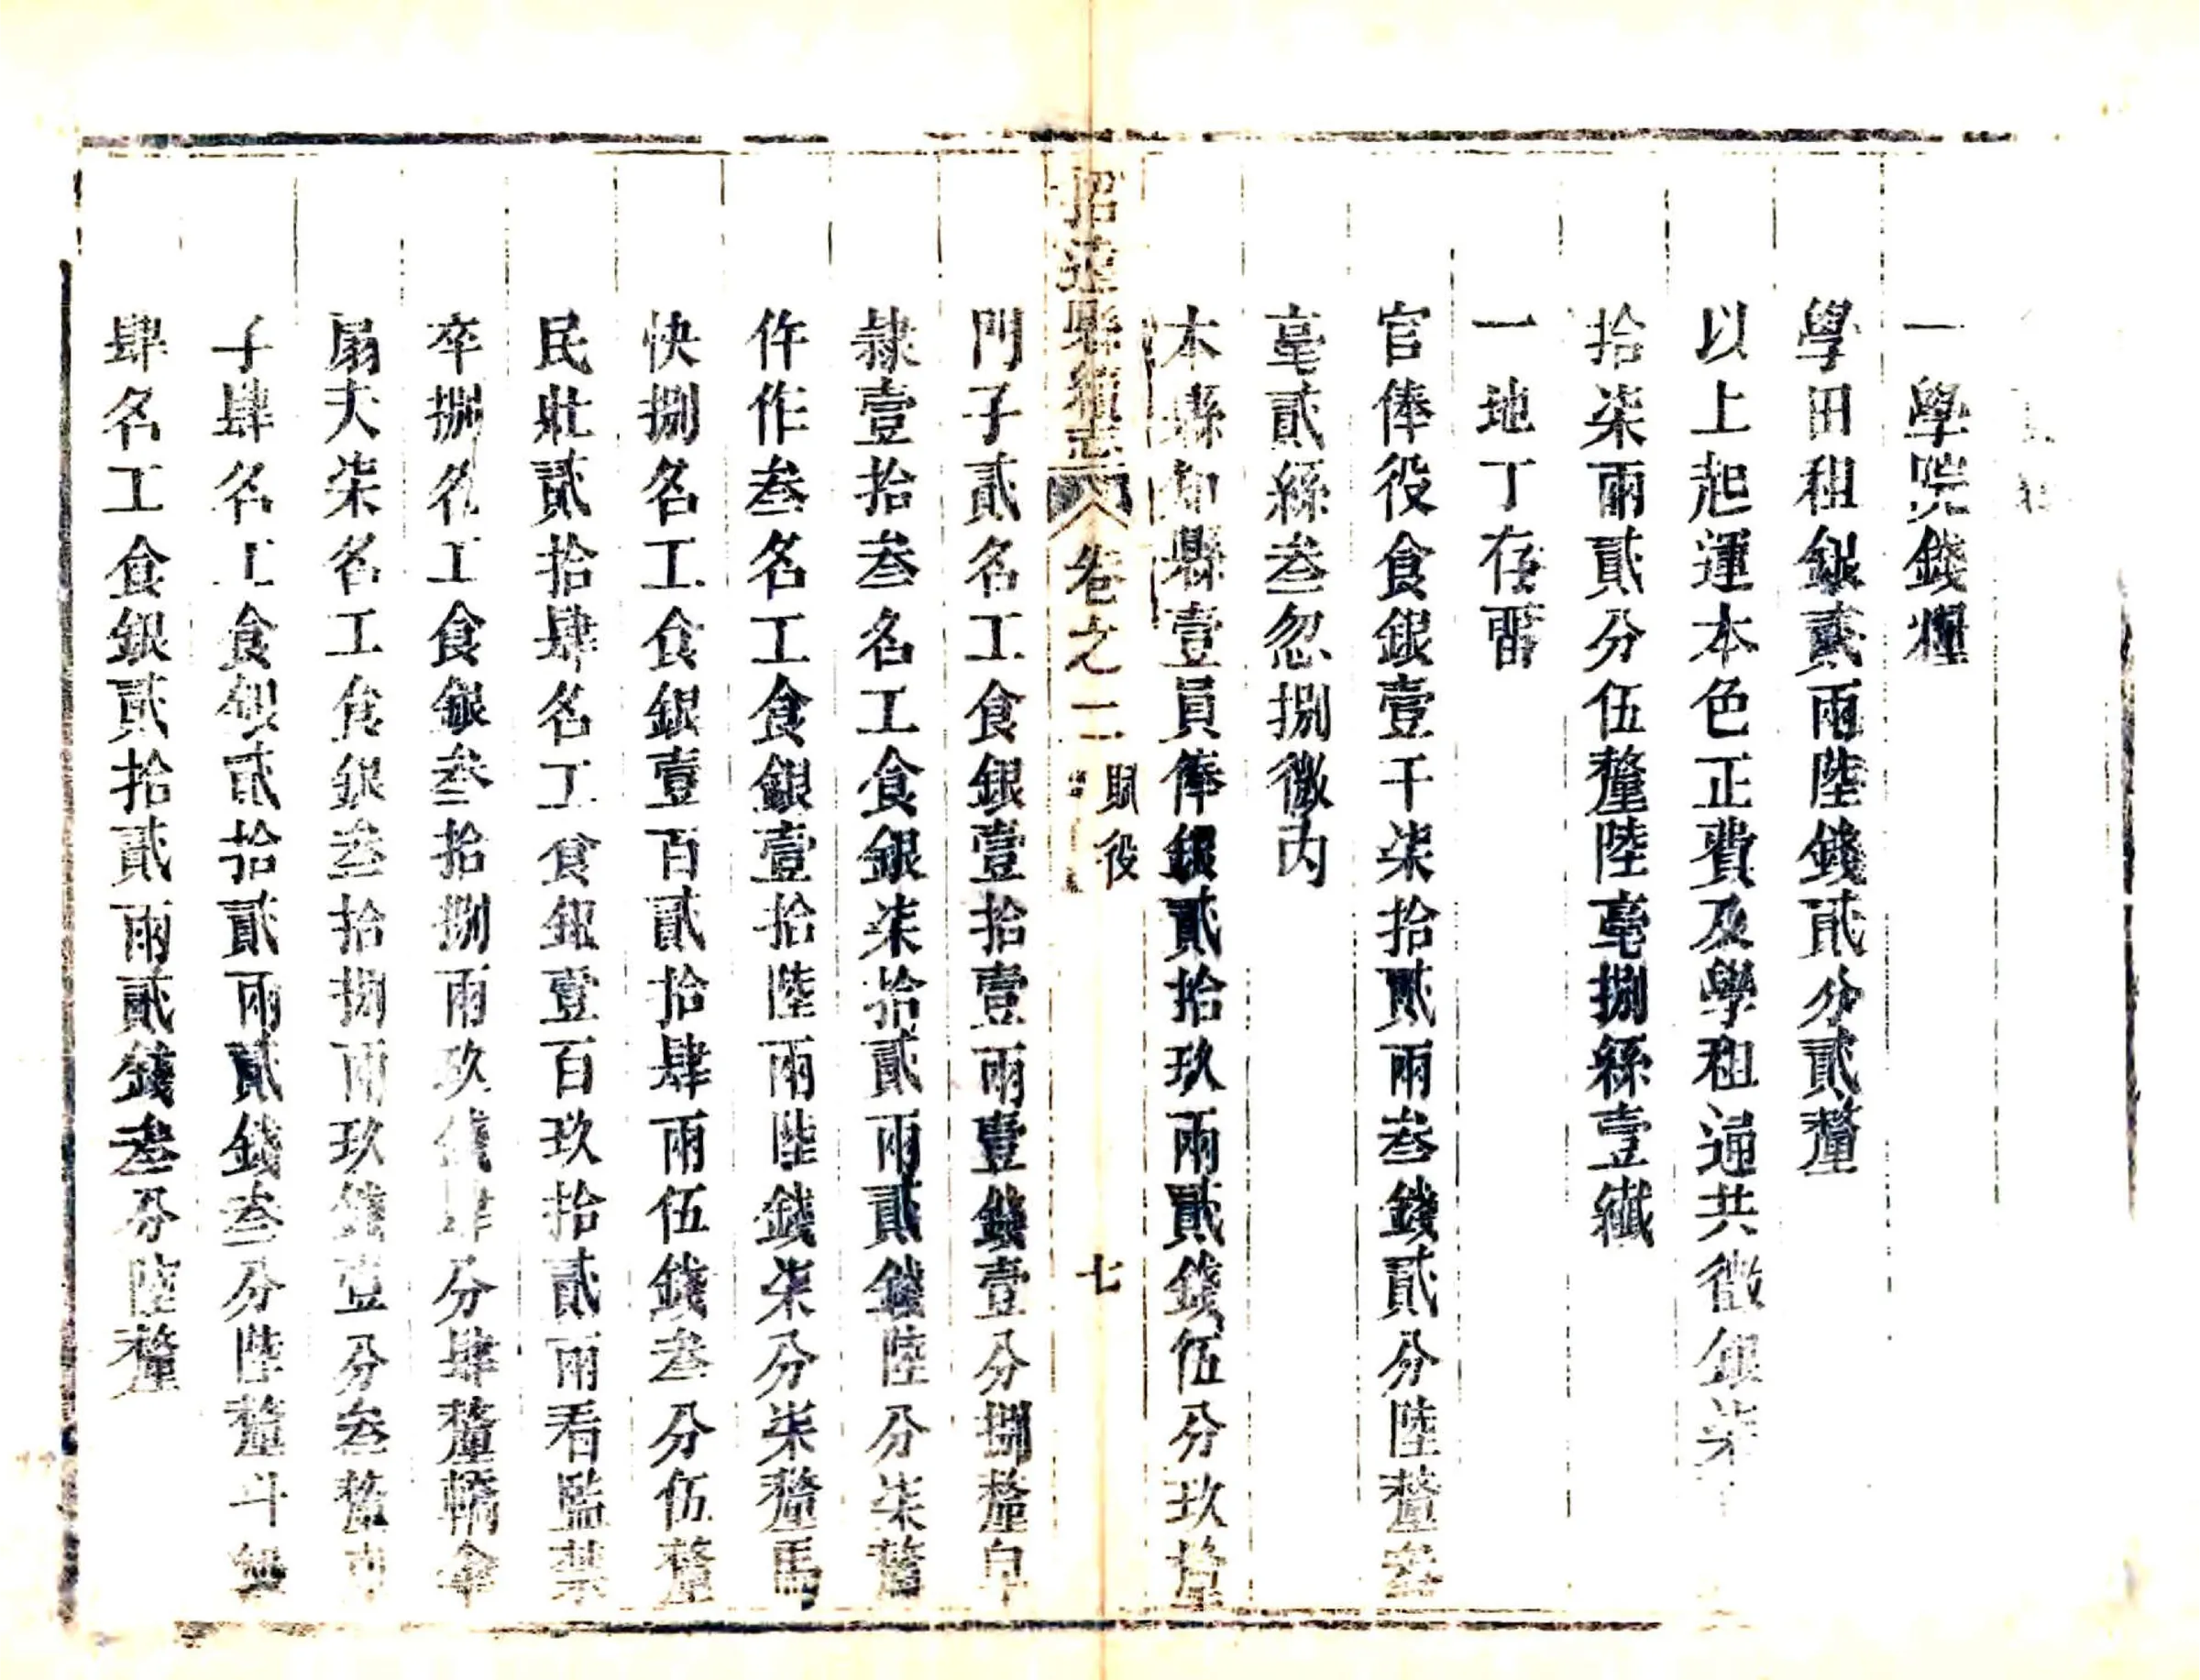 一學院錢糧
學田租銀貳兩陸錢貳分貳釐
以上起運本色正費及學租通共徵銀柒
拾柒兩貳分伍釐陸毫捌絲壹纖
一地丁存留
官俸役食銀壹千柒拾貳兩叁錢貳分陸釐叁
毫貳絲叁忽捌微內
本縣知縣壹員俸銀貳拾玖兩貳錢伍分玖釐
招遠縣續志 卷之二 賦役 七
門子貳名工食銀壹拾壹兩壹錢壹分捌釐皁
隸壹拾叁名工食銀柒拾貳兩貳錢陸分柒釐
仵作叁名工食銀壹拾陸兩陸錢柒分柒釐馬
快捌名工食銀壹百貳拾肆兩伍錢叁分伍釐
民壯貳拾肆名工食銀壹百玖拾貳兩看監禁
卒捌名工食銀叁拾捌兩玖錢肆分肆釐轎傘
扇夫柒名工食銀叁拾捌兩玖錢壹分叁釐庫
子肆名工食銀貳拾貳兩貳錢叁分陸釐斗級
肆名工食銀貳拾貳兩貳錢叁分陸釐